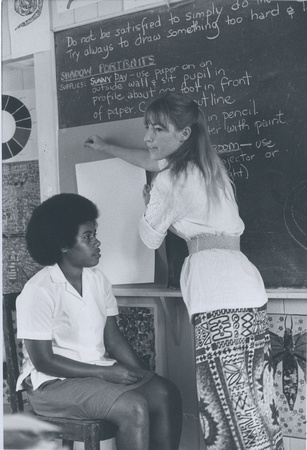 Do not be satisfied to simply do
Try always to draw something too hard &
SHADOW PORTRAITS
SUPPLIES: SUNNY DAY - use paper on an
outside wall & sit pupil in
profile about one foot in front
of paper. outline
in pencil
with paint
- use
or